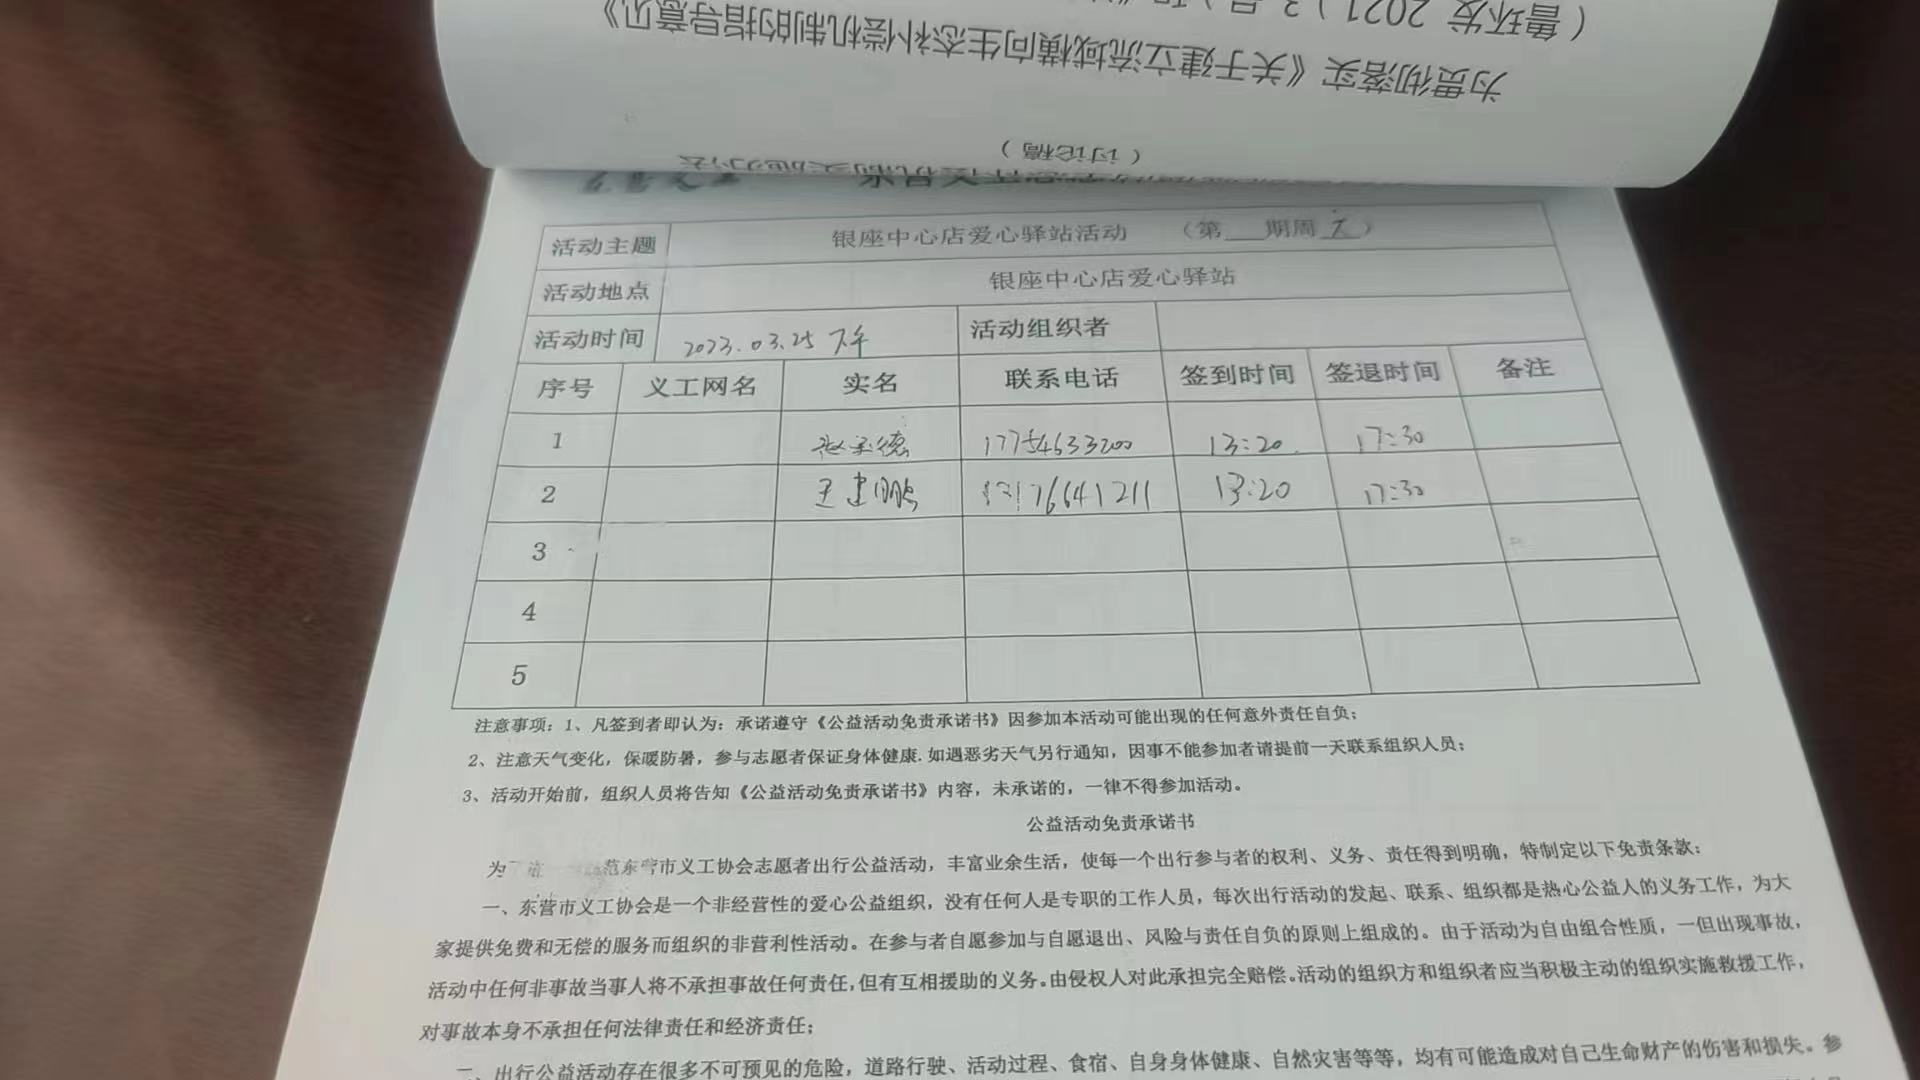 （鲁环发〔2021〕3号）
为贯彻落实《关于建立流域横向生态补偿机制的指导意见》
（讨论稿）
活动主题 银座中心店爱心驿站活动 （第___期周六）
活动地点 银座中心店爱心驿站
活动时间 2023.03.25 下午 活动组织者
序号 义工网名 实名 联系电话 签到时间 签退时间 备注
1 17754633200 13:20 17:30
2 王建鹏 13:20 17:30
3
4
5
注意事项：1、凡签到者即认为：承诺遵守《公益活动免责承诺书》因参加本活动可能出现的任何意外责任自负；
2、注意天气变化，保暖防暑，参与志愿者保证身体健康.如遇恶劣天气另行通知，因事不能参加者请提前一天联系组织人员；
3、活动开始前，组织人员将告知《公益活动免责承诺书》内容，未承诺的，一律不得参加活动。
公益活动免责承诺书
为 范东营市义工协会志愿者出行公益活动，丰富业余生活，使每一个出行参与者的权利、义务、责任得到明确，特制定以下免责条款：
一、东营市义工协会是一个非经营性的爱心公益组织，没有任何人是专职的工作人员，每次出行活动的发起、联系、组织都是热心公益人的义务工作，为大
家提供免费和无偿的服务而组织的非营利性活动。在参与者自愿参加与自愿退出、风险与责任自负的原则上组成的。由于活动为自由组合性质，一但出现事故，
活动中任何非事故当事人将不承担事故任何责任，但有互相援助的义务。由侵权人对此承担完全赔偿。活动的组织方和组织者应当积极主动的组织实施救援工作，
对事故本身不承担任何法律责任和经济责任；
二、出行公益活动存在很多不可预见的危险，道路行驶、活动过程、食宿、自身身体健康、自然灾害等等，均有可能造成对自己生命财产的伤害和损失。参